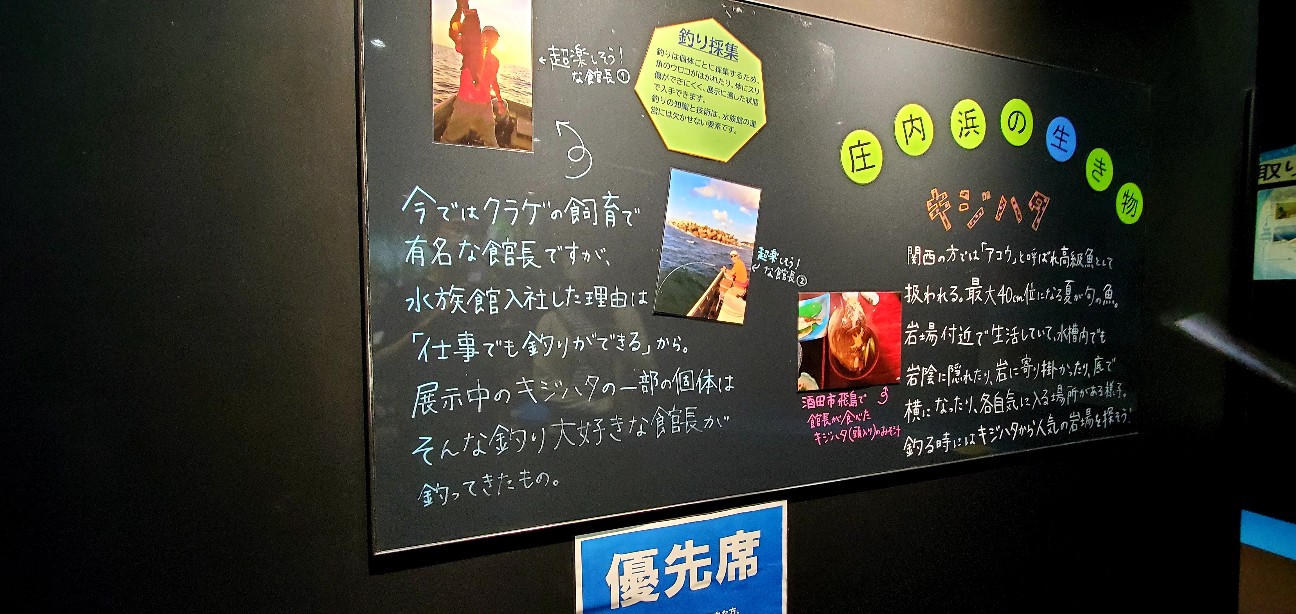 ←超楽しそう!
な館長①
釣り採集
釣りは個体ごとに採集するため、
魚のウロコがはがれたり、体にスリ
傷ができにくく、展示に適した状態
で入手できます。
釣りの知識と技術は、水族館の運
営には欠かせない要素です。
今ではクラゲの飼育で
有名な館長ですが、
水族館入社した理由は
「仕事でも釣りができる」から。
展示中のキジハタの一部の個体は
そんな釣り大好きな館長が
釣ってきたもの。
超楽しそう!
な館長②
庄内浜の生き物
キジハタ
関西の方では「アコウ」と呼ばれ高級魚として
扱われる。最大40cm位になる夏が旬の魚。
岩場付近で生活していて、水槽内でも
岩陰に隠れたり、岩に寄り掛かったり、底で
横になったり、各自気に入る場所がある様子。
釣る時にはキジハタから人気の岩場を探そう!
酒田市飛島で
館長が食べた
キジハタ(頭入り)のみそ汁
優先席
取り